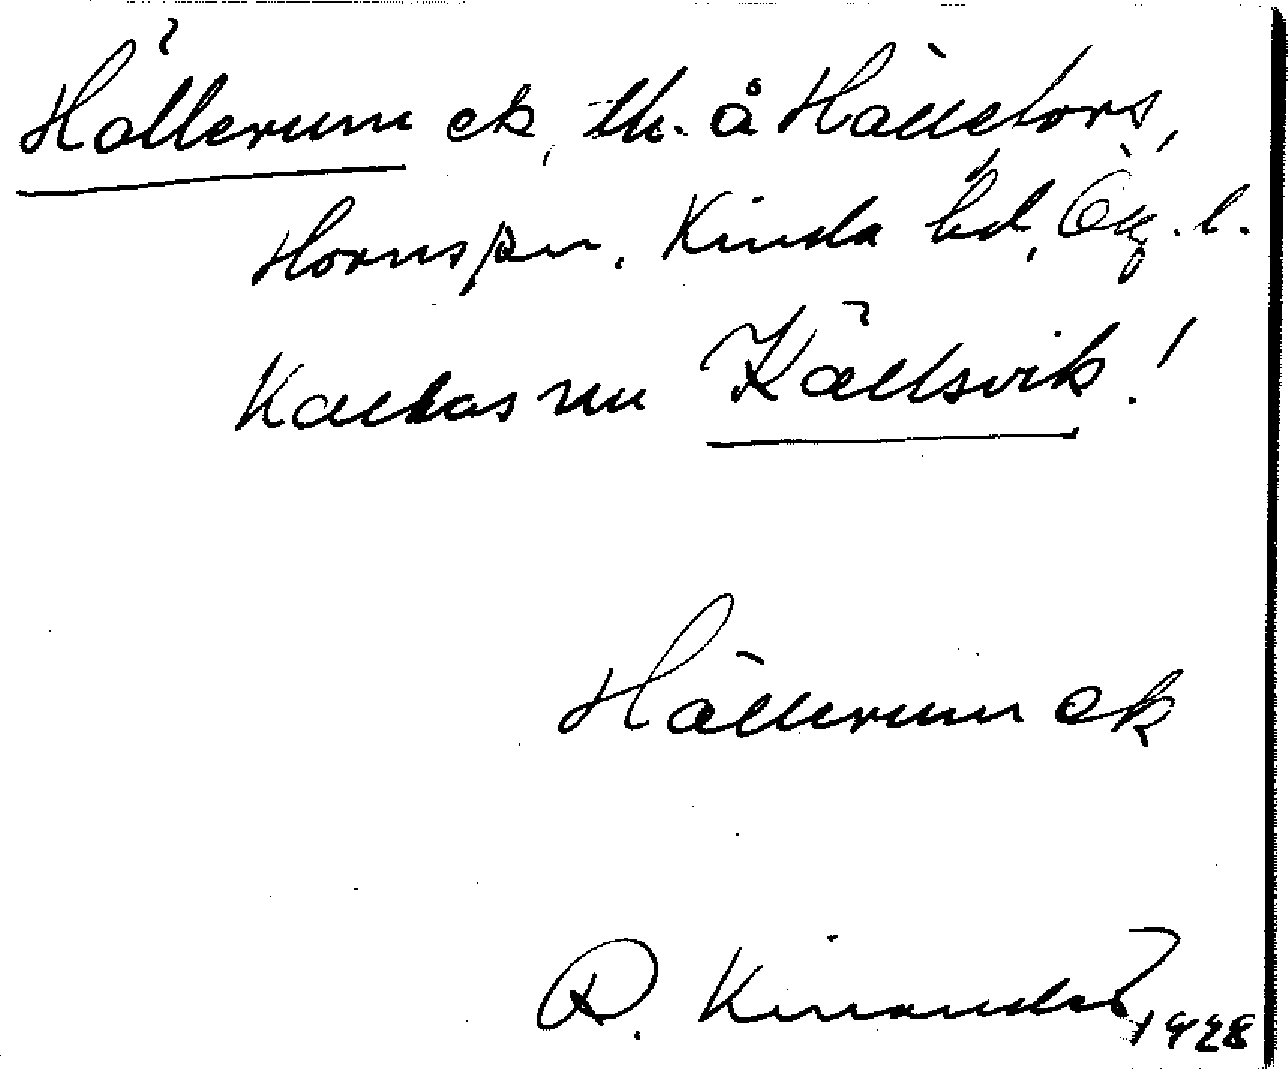 Hällerum ek, th. å Hälletors,
Horns sn. Kinda hd, Ög. l.
Kallas nu Källsvik!
Hällerum ek
R. Kinander 1928